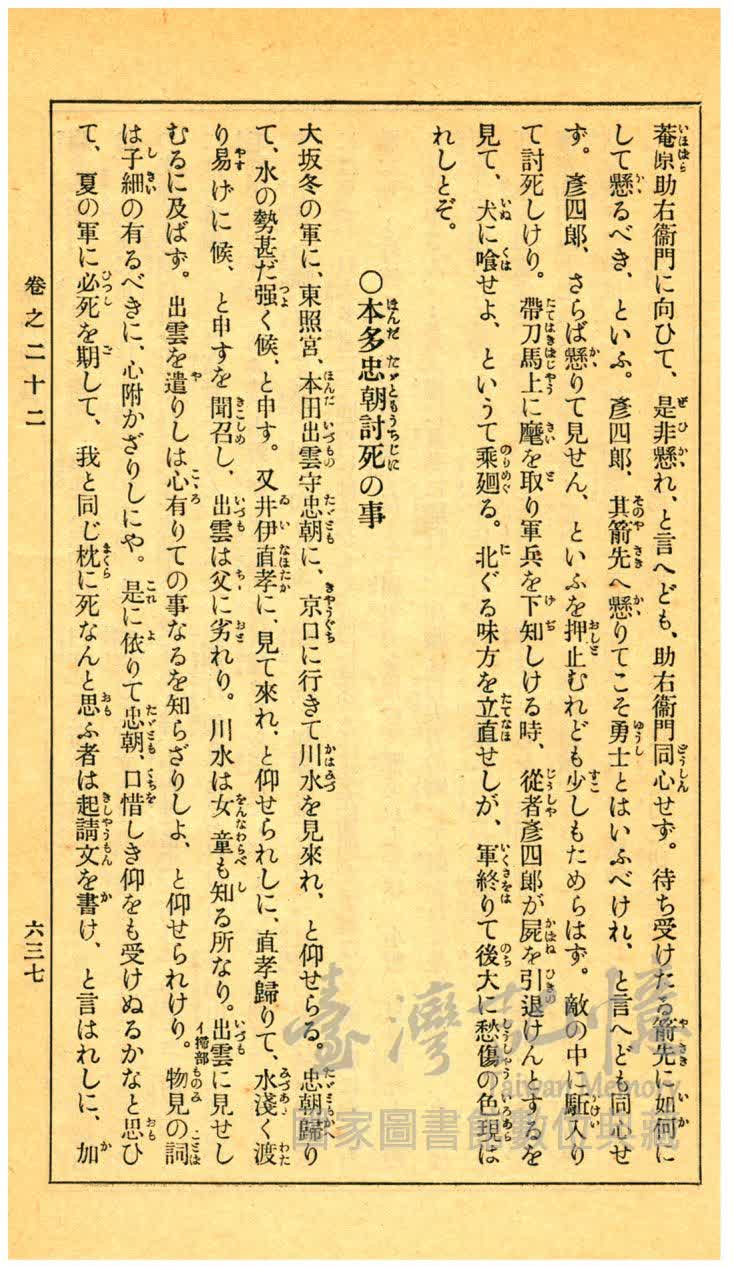 菴原助右衞門に向ひて、是非懸れ、と言へども、助右衞門同心せず。待ち受けたる箭先に如何に
して懸るべき、といふ。彥四郞、其箭先へ懸りてこそ勇士とはいふべけれ、と言へども同心せ
ず。彥四郞、さらば懸りて見せん、といふを押止むれども少しもためらはず。敵の中に駈入り
て討死しけり。帶刀馬上に麾を取り軍兵を下知しける時、從者彥四郞が屍を引退けんとするを
見て、犬に喰せよ、というて乘廻る。北ぐる味方を立直せしが、軍終りて後大に愁傷の色現は
れしとぞ。
〇本多忠朝討死の事
大坂冬の軍に、東照宮、本田出雲守忠朝に、京口に行きて川水を見來れ、と仰せらる。忠朝歸り
て、水の勢甚だ强く候、と申す。又井伊直孝に、見て來れ、と仰せられしに、直孝歸りて、水淺く渡
り易げに候、と申すを聞召し、出雲は父に劣れり。川水は女童も知る所なり。出雲に見せし
むるに及ばず。出雲を遣りしは心有りての事なるを知らざりしよ、と仰せられけり。物見の詞
イ掃部
は子細の有るべきに、心附かざりしにや。是に依りて忠朝、口惜しき仰をも受けぬるかなと思ひ
て、夏の軍に必死を期して、我と同じ枕に死なんと思ふ者は起請文を書け、と言はれしに、加
卷之二十二
六三七
臺灣記憶
Taiwan Memory
國家圖書館數位典藏